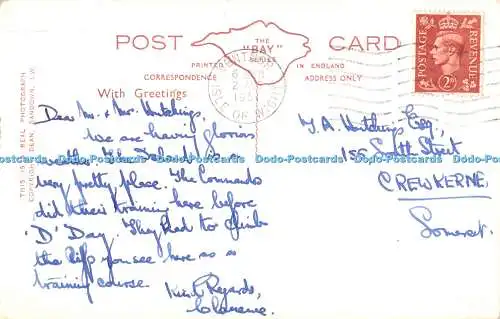 POST CARD
THE
"BAY"
SERIES
PRINTED IN ENGLAND
CORRESPONDENCE ADDRESS ONLY
With Greetings
THIS IS A REAL PHOTOGRAPH
COPYRIGHT DEAN, SANDOWN, I.W.
POSTAGE REVENUE
2D
ISLE OF WIGHT
Dear Mr. & Mrs. Hutchings,
We are having glorious
weather. The Island is a
very pretty place. The Commandos
did their training here before
'D' Day. They had to climb
the cliffs you see here as a
training course.
Kind Regards,
Clarence.
T. A. Hutchings Esq.,
155 South Street
CREWKERNE,
Somerset.
Dodo-Postcards Dodo-Postcards Dodo-Postcards Dodo-Postcards Dodo-Postcards